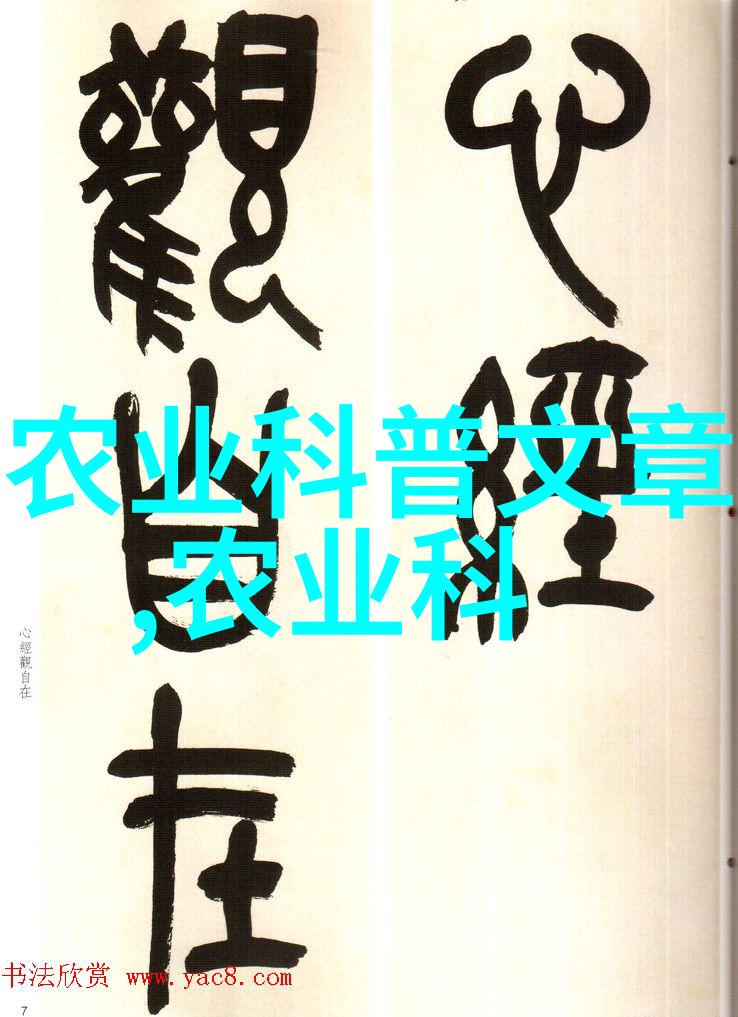 心經
觀自在
农业科普文章
,农业科
心經觀自在
书法欣赏 www.yac8.com
7